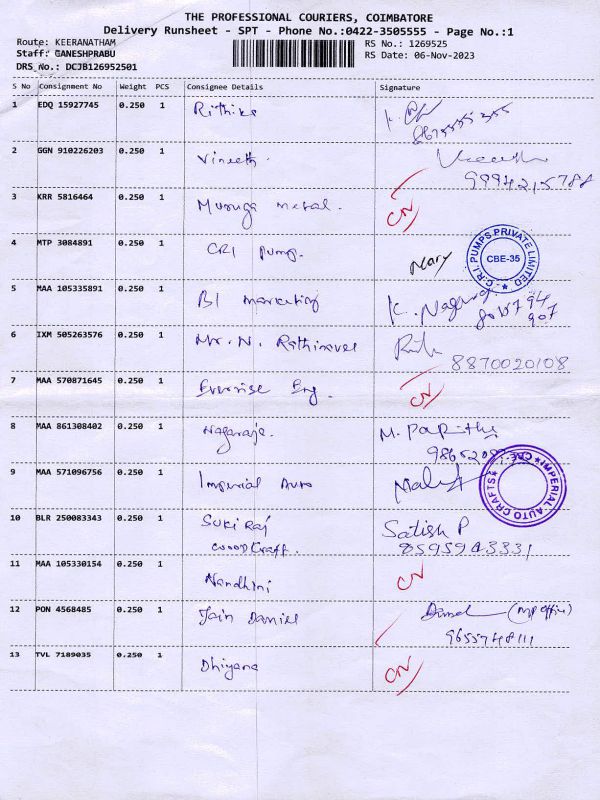 THE PROFESSIONAL COURIERS, COIMBATORE
Delivery Runsheet - SPT - Phone No.:0422-3505555 - Page No.:1
Route: KEERANATHAM RS No.: 1269525
Staff: GANESHPRABU RS Date: 06-Nov-2023
DRS No.: DCJB126952501
S No Consignment No Weight PCS Consignee Details Signature
1 EDQ 15927745 0.250 1 Rithika
2 GGN 910226203 0.250 1 Vineeth.
9994215788
3 KRR 5816464 0.250 1 Muruga metal. CN
4 MTP 3084891 0.250 1 CRI Pump. Mary
C.R.I. PUMPS PRIVATE LIMITED. CBE-35
5 MAA 105335891 0.250 1 BI marketing K. Nagaraj
6 IXM 505263576 0.250 1 Mr. N. Rathinavel
8870020108
7 MAA 570871645 0.250 1 Eng. CN
8 MAA 861308402 0.250 1 Nagaraja. M. Pavithra
9 MAA 571096756 0.250 1 Imperial Auto
IMPERIAL AUTO CRAFTS CBE
10 BLR 250083343 0.250 1 Suki Raj Satish P
wood craft. 8595943331
11 MAA 105330154 0.250 1 Nandhini CN
12 PON 4568485 0.250 1 Jain Daniel
9655748111
13 TVL 7189035 0.250 1 Dhiyana CN